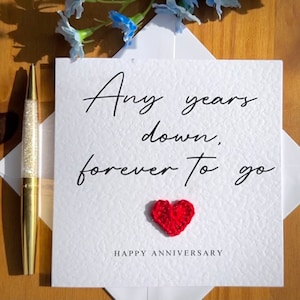 Any years
down,
forever to go
HAPPY ANNIVERSARY